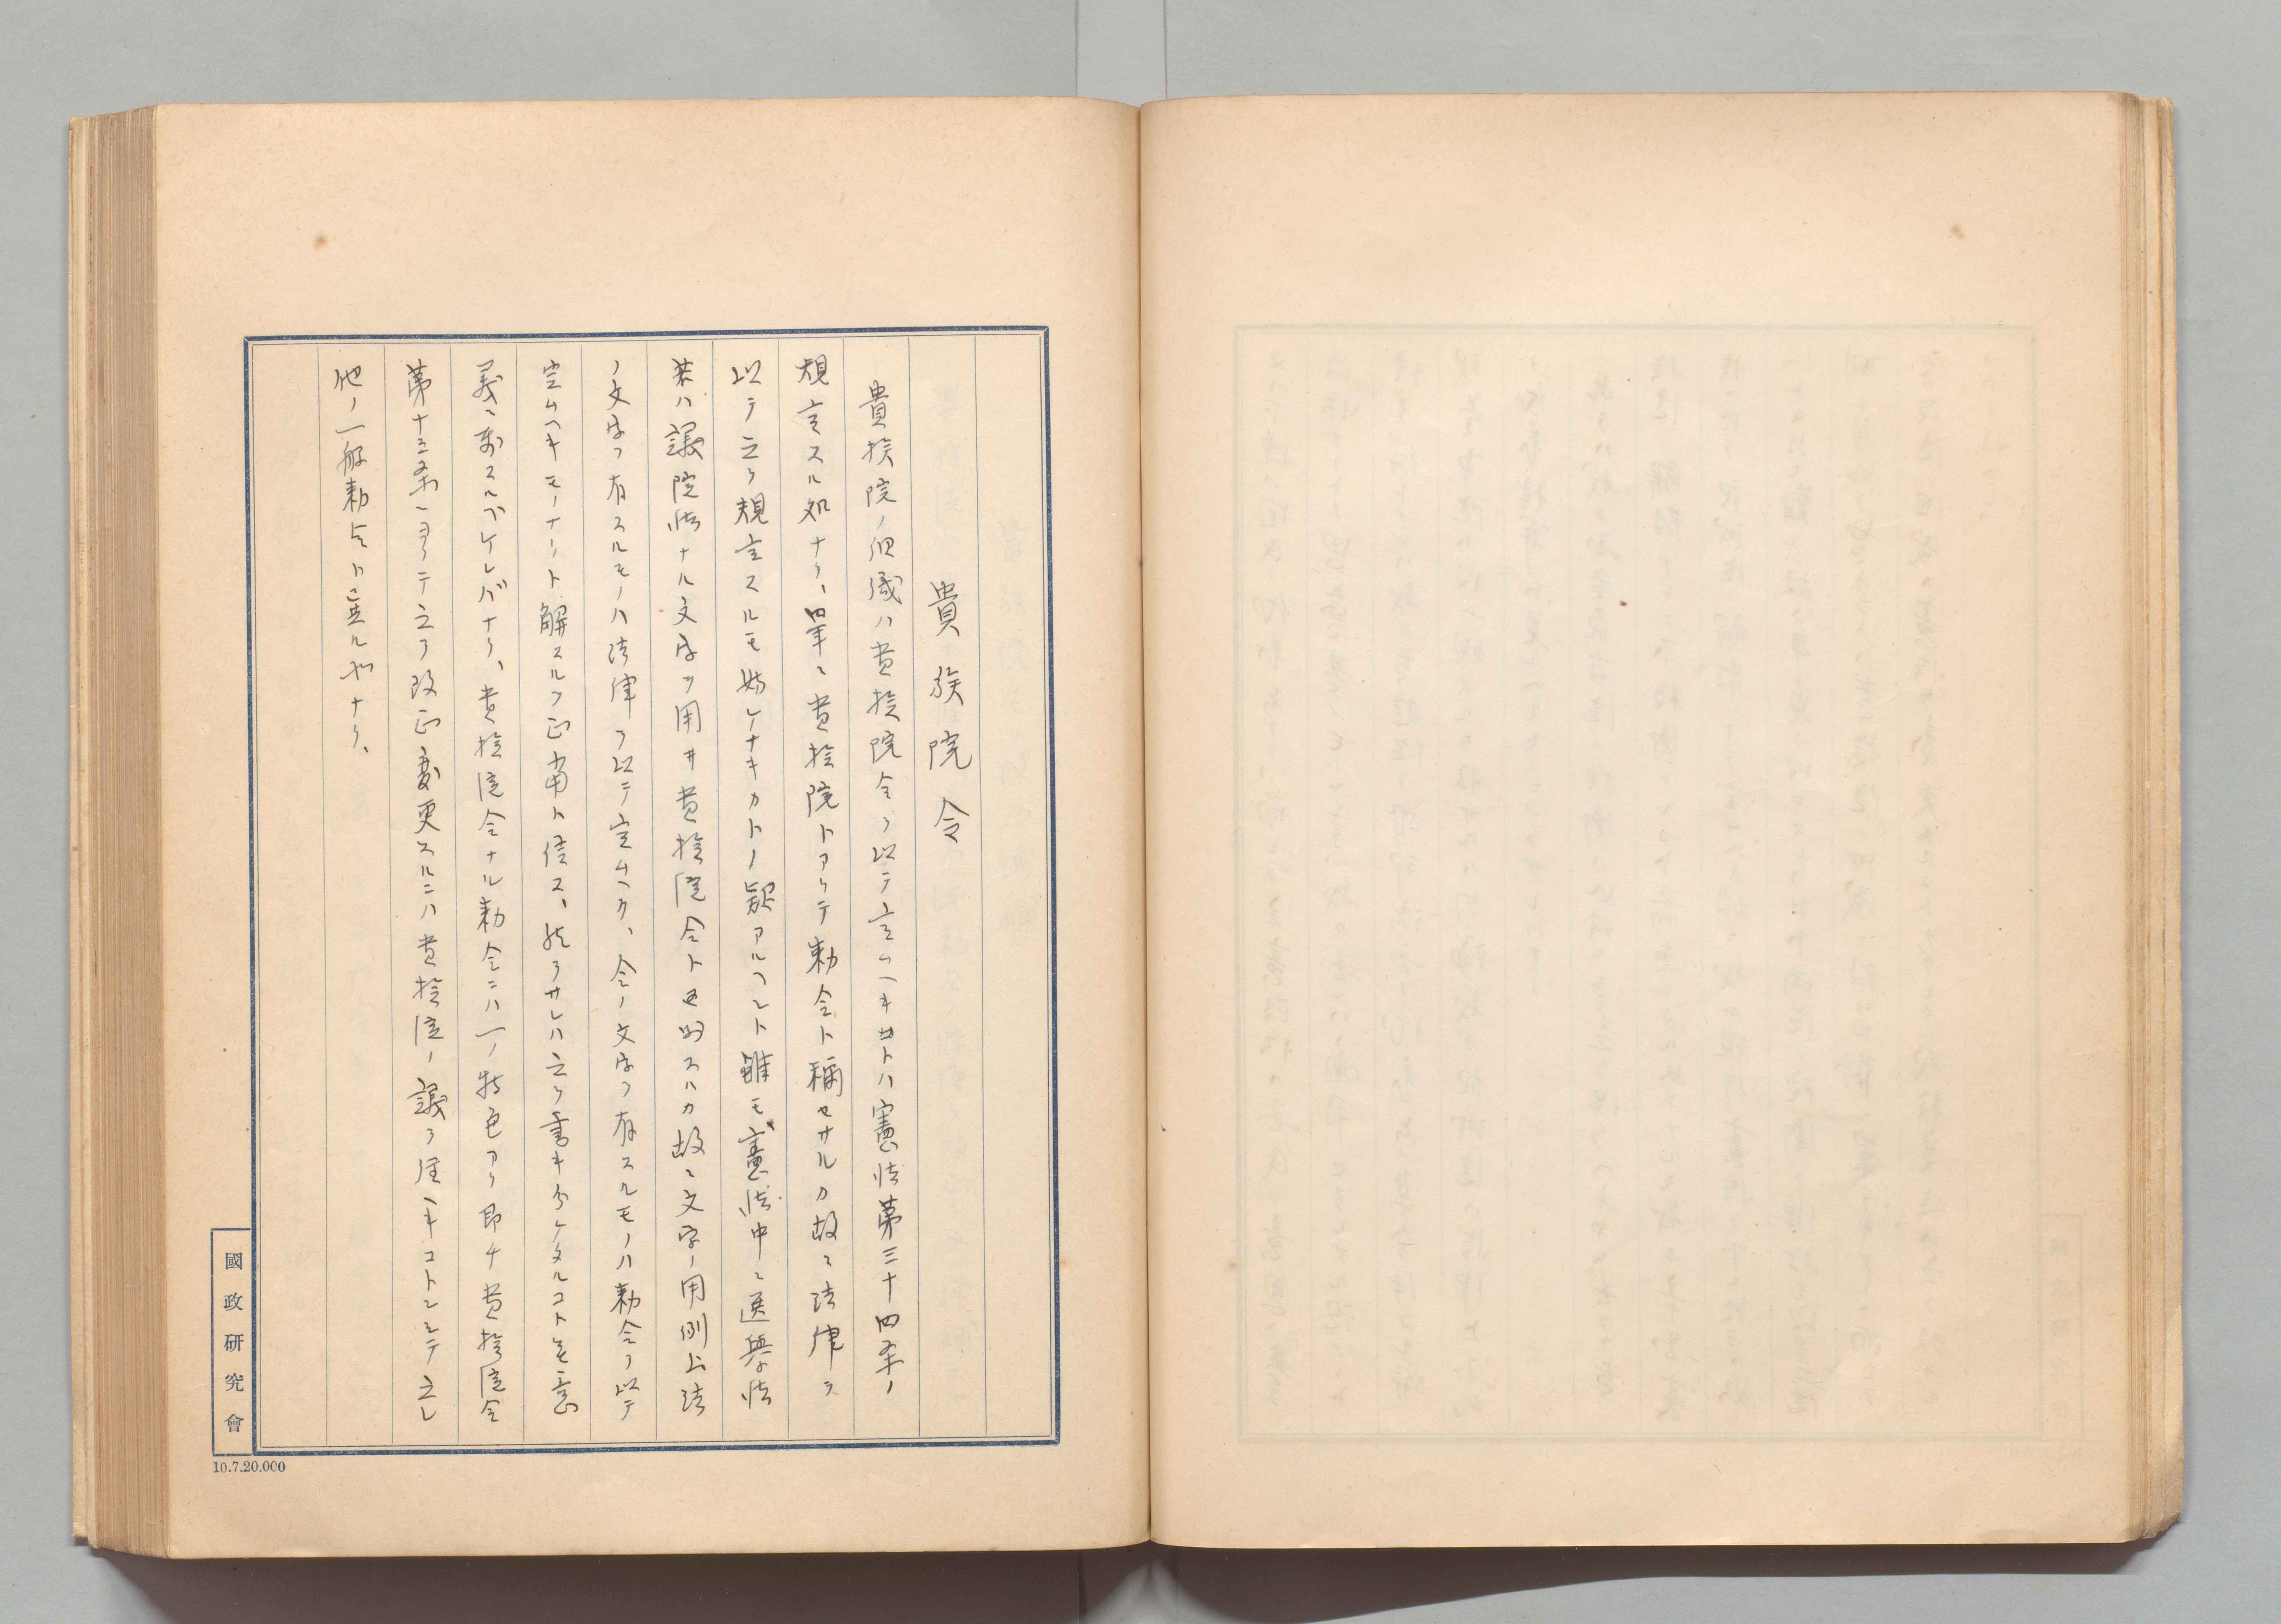 貴族院令
貴族院ノ組織ハ貴族院令ヲ以テ定ムヘキコトハ憲法第三十四条ノ
規定スル処ナリ、単ニ貴族院トアリテ勅令ト稱セサルカ故ニ法律ヲ
以テ之ヲ規定スルモ妨ケナキカトノ疑アルヘシト雖モ憲法中ニ選挙法
若ハ議院法ナル文字ヲ用ヰ貴族院令ト区別スルカ故ニ文字ノ用例上法
ノ文字ヲ有スルモノハ法律ヲ以テ定ムヘク、令ノ文字ヲ有スルモノハ勅令ヲ以テ
定ムヘキモノナリト解スルヲ正当ト信ス、然ラサレハ之ヲ書キ分ケタルコト無意
義ニ帰スルベケレバナリ、貴族院令ナル勅令ニハ一ノ特色アリ即チ貴族院令
第十三条ニヨリテ之ヲ改正変更スルニハ貴族院ノ議ヲ経ヘキコトニシテ之レ
他ノ一般勅令ト異ル也ナリ、
國政研究會
10.7.20.000